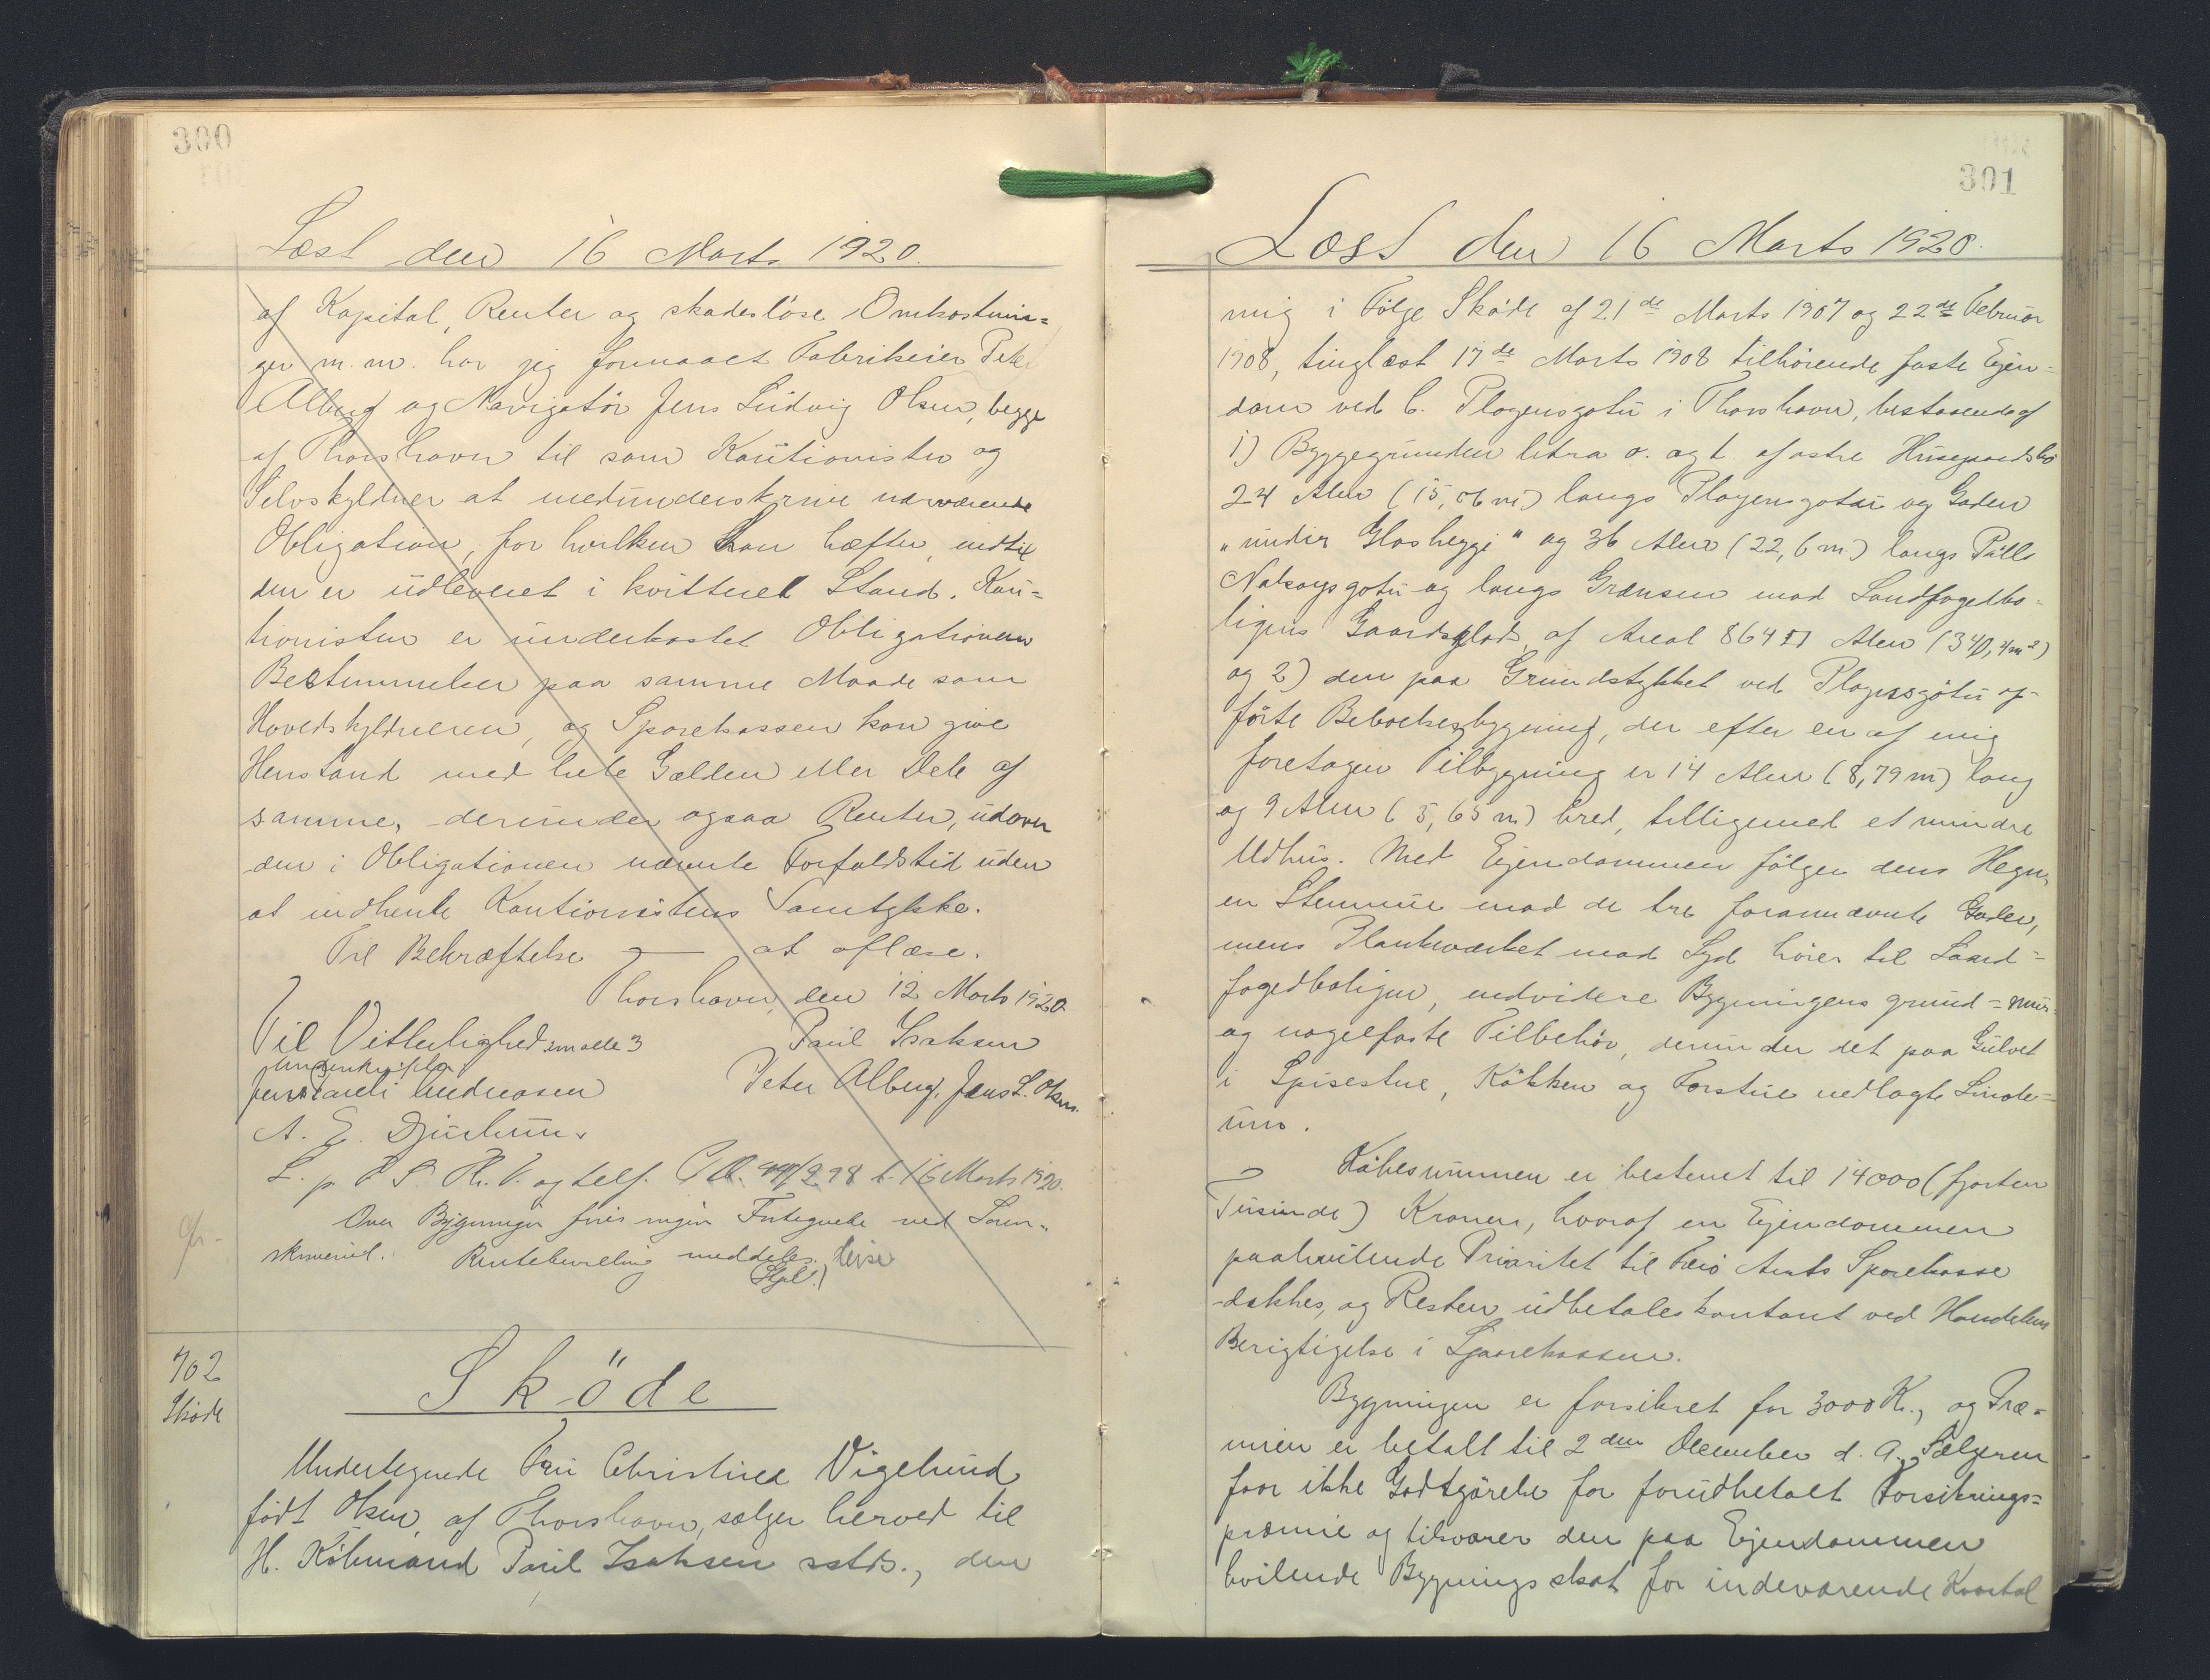 300
Læst den 16 Marts 1920.
af Kapital, Renter og skadesløse Omkostnin=
ger m. m. har jeg formaaet Fabrikeier Peter
Alberg og Navigatör Jens Ludvig Olsen, begge
af Thorshavn til som Kautionister og
Selvskyldner at medunderskrive nærværende
Obligation, for hvilken han hæfter, indtil
den er udleveret i kvitteret Stand. Kau=
tionisten er underkastet Obligationens
Bestemmelser paa samme Maade som
Hovedskyldneren, og Sparekassen kan give
Henstand med hele Gælden eller Dele af
samme, derunder ogsaa Renter, udover
den i Obligationen nævnte Forfaldstid uden
at indhente Kautionistens Samtykke.
Til Bekræftelse — at aflæse.
Thorshavn, den 12 Marts 1920.
Til Vitterlighed om alle 3 Paul Isaksen
Underskrifter
Jens Pauli Andreasen Peter Alberg, Jens L. Olsen.
A. E. Djurhuus
L. p. F. S. R. V. og telf. 16 Marts 1920.
Over Bygninger fins ingen Fortegnelse ved Soren-
skriveriet. Rentebevilling meddeles.
702
Skøde
Sköde
Undertegnede Fru Christine Vigelund
født Olsen, af Thorshavn, sælger herved til
H. Köbmand Paul Isaksen sstds., den
301
Læst den 16 Marts 1920.
mig i Følge Skøde af 21de Marts 1907 og 22de Februar
1908, tinglæst 17de Marts 1908 tilhørende faste Ejen=
dom ved C. Ployensgøtu i Thorshavn, bestaaende af
1) Byggegrunden litra o. og t. af østre Husegaardsbø
24 Alen (15,06 m) langs Ployensgøtu og Gaden
"undir Glasheyggi" og 36 Alen (22,6 m) langs Pálls
Nolsoysgøtu og langs Grænsen mod Landfogedbo=
ligens Gaardsplads, af Areal 864 □ Alen (340,4 m²)
og 2) den paa Grundstykket ved Ployensgøtu op=
førte Beboelsesbygning, der efter en af mig
foretagen Tilbygning er 14 Alen (8,79 m) lang
og 9 Alen (5,65 m) bred, tilligemed et mindre
Udhus. Med Ejendommen følger dens Hegn,
en Stenmur mod de tre forannævnte Gader,
mens Plankeværket mod Syd hører til Land=
fogedboligen, endvidere Bygningens grund= mur=
og nagelfaste Tilbehör, derunder det paa Gulvet
i Spisestue, Køkken og Forstue nedlagte Linole=
um.
Købesummen er bestemt til 14000 (fjorten
Tusinde) Kroner, hvoraf en Ejendommen
paahvilende Prioritet til Færø Amts Sparekasse
dækkes, og Resten udbetales kontant ved Handelens
Berigtigelse i Sparekassen.
Bygningen er forsikret for 3000 K., og Præ=
mien er betalt til 2den December d. A., Sælgeren
faar ikke Godtgørelse for forudbetalt Forsikrings=
præmie og tilsvarer den paa Ejendommen
hvilende Bygningsskat for indeværende Kvartal